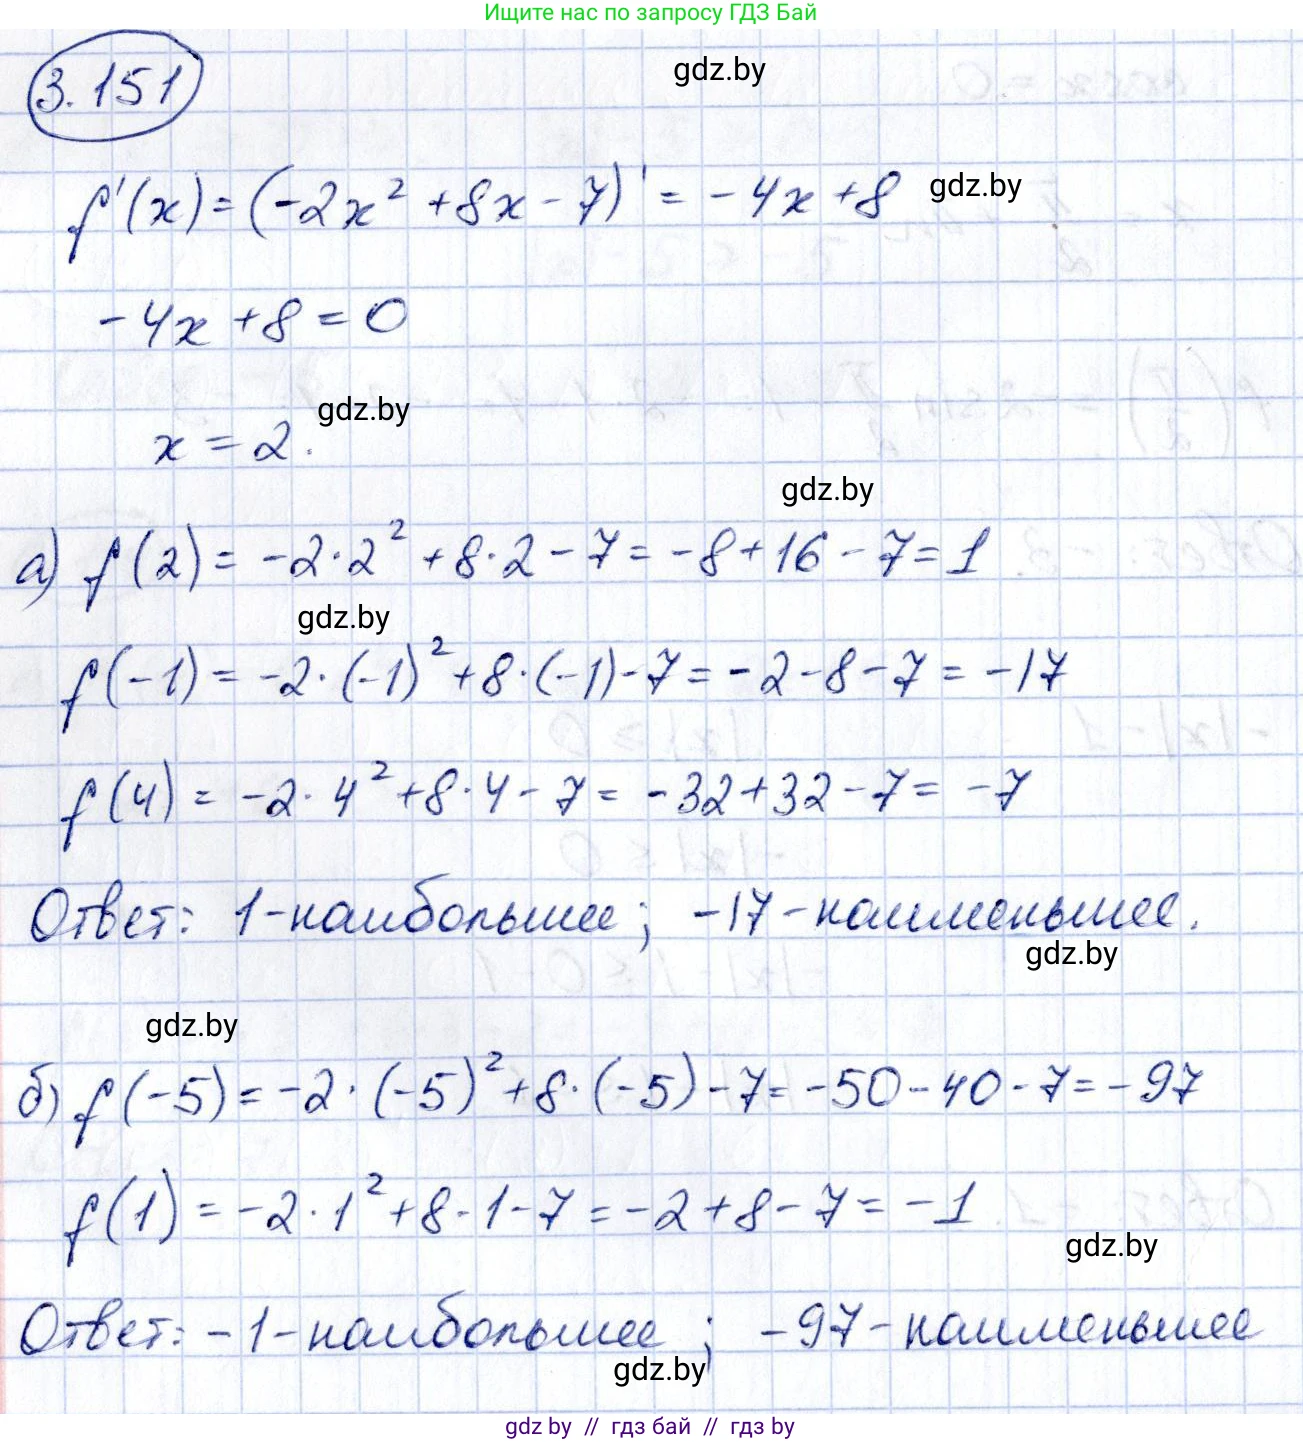 Ищите нас по запросу ГДЗ Бай
3.151
gdz.by
f'(x) = (-2x² + 8x - 7)' = -4x + 8
gdz.by
-4x + 8 = 0
gdz.by
x = 2.
gdz.by
а) f(2) = -2·2² + 8·2 - 7 = -8 + 16 - 7 = 1
gdz.by
f(-1) = -2·(-1)² + 8·(-1) - 7 = -2 - 8 - 7 = -17
f(4) = -2·4² + 8·4 - 7 = -32 + 32 - 7 = -7
Ответ: 1 - наибольшее; -17 - наименьшее.
gdz.by
gdz.by
б) f(-5) = -2·(-5)² + 8·(-5) - 7 = -50 - 40 - 7 = -97
f(1) = -2·1² + 8·1 - 7 = -2 + 8 - 7 = -1
gdz.by
Ответ: -1 - наибольшее; -97 - наименьшее
gdz.by
gdz by // гдз бай // гдз by